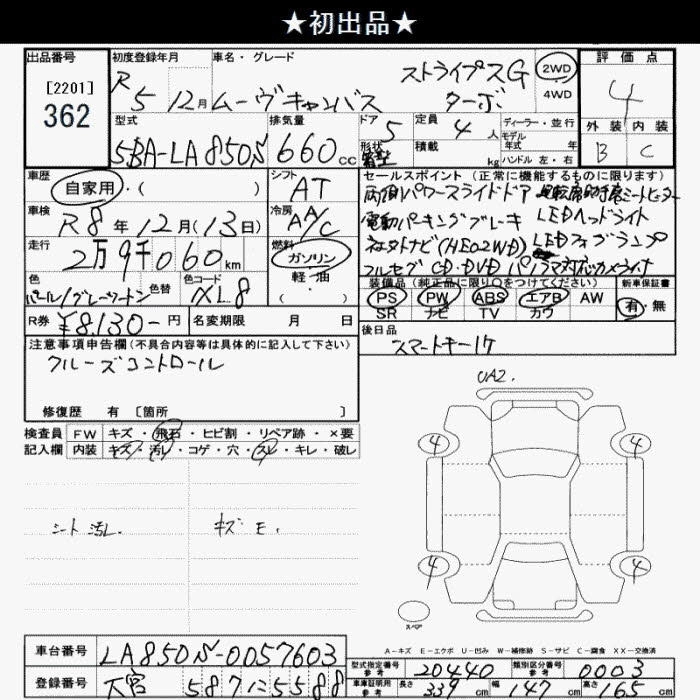 ★初出品★
出品番号
[2201]
362
初度登録年月
R 5 12月
車名・グレード
ストライプスG
ムーヴキャンバス ターボ
2WD
4WD
評価点
4
外装 内装
B C
型式
5BA-LA850S
排気量
660cc
ドア
5
形状
定員
4人
積載
kg
ディーラー・並行
モデル
年式 年
ハンドル 左・右
車歴
自家用・( )
シフト
AT
車検
R8年12月(13日)
冷房
AAC
走行
2万9千060km
燃料
ガソリン
軽・油
( )
色
パール/グレーツートン
色替
色コード
XL8
R券
¥8,130-円
名変期限 月 日
セールスポイント (正常に機能するものに限ります)
両側パワースライドドア 運転席助手席シートヒーター
電動パーキングブレーキ LEDヘッドライト
LEDフォグランプ
フルセグ CD・DVD パノラマ対応カメラ付
装備品 (純正品に限り○をつけてください)
新車保証書
PS PW ABS エアB AW
SR ナビ TV カワ
有・無
後日品
スマートキー1ケ
注意事項申告欄(不具合内容等は具体的に記入して下さい)
クルーズコントロール
修復歴 有 [箇所 ]
検査員
記入欄
FW キズ・飛石・ヒビ割・リペア跡・×要
内装 キズ・汚レ・コゲ・穴・スレ・キレ・破レ
シート汚レ. キズE.
UA2.
4 4
4 4
スペア
A-キズ E-エクボ U-凹み W-補修跡 S-サビ C-腐食 XX-交換済
車台番号
LA850S-0057603
登録番号
大宮 587 に 5588
型式指定番号
参考
20440
類別区分番号
参考
0003
車車証明用
参考
長さ 339cm 幅 147cm 高さ 165cm